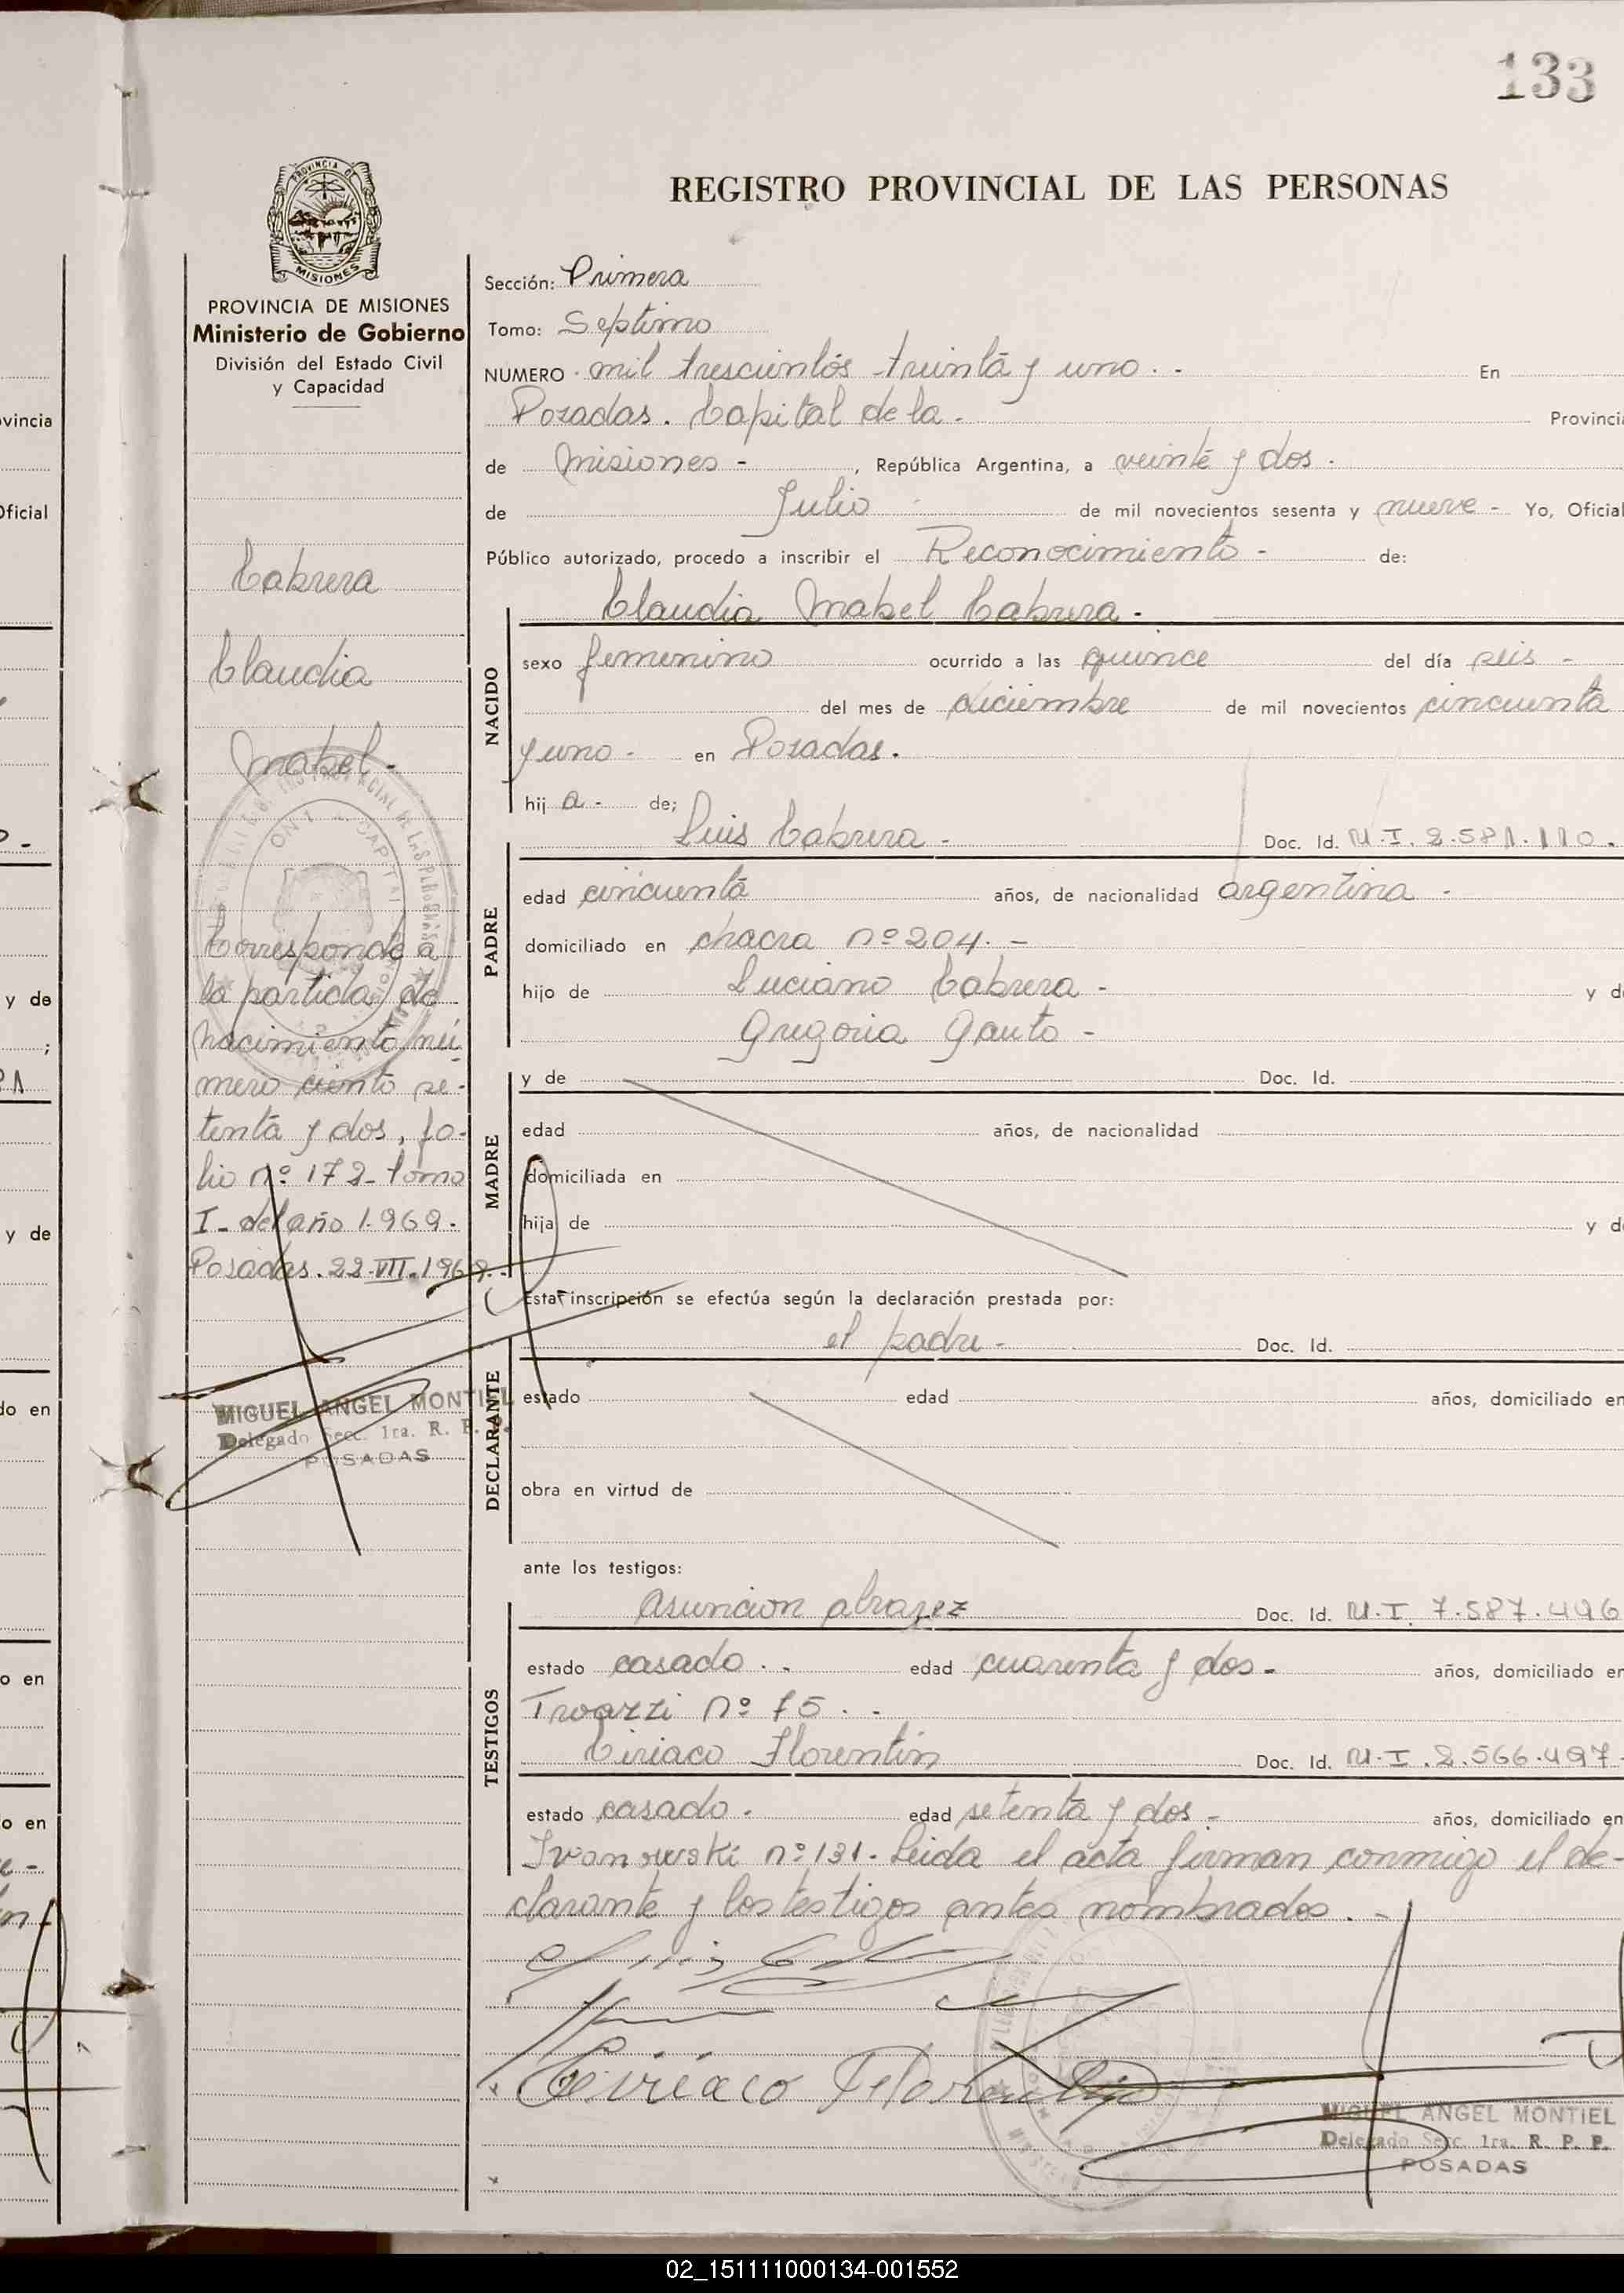 133
PROVINCIA DE
MISIONES
REGISTRO PROVINCIAL DE LAS PERSONAS
PROVINCIA DE MISIONES
Ministerio de Gobierno
División del Estado Civil
y Capacidad
Sección: Primera
Tomo: Septimo
NUMERO mil trescientos treinta y uno. - En
Posadas. Capital de la - Provincia
de Misiones - , República Argentina, a veinte y dos.
de Julio de mil novecientos sesenta y nueve - Yo, Oficial
Público autorizado, procedo a inscribir el Reconocimiento - de:
Claudia Mabel Cabrera -
NACIDO
sexo femenino ocurrido a las quince del día seis -
del mes de diciembre de mil novecientos cincuenta
y uno - en Posadas.
hij a - de;
Luis Cabrera - Doc. Id. M.I. 2.581.110.
PADRE
edad cincuenta años, de nacionalidad argentina -
domiciliado en chacra nº 204. -
hijo de Luciano Cabrera - y d
Gregoria Gauto -
MADRE
y de Doc. Id.
edad años, de nacionalidad
domiciliada en
hija de y d
Esta inscripción se efectúa según la declaración prestada por:
el padre - Doc. Id.
DECLARANTE
estado edad años, domiciliado en
obra en virtud de
ante los testigos:
TESTIGOS
Asuncion Doc. Id. M.I. 7.587.496
estado casado. - edad cuarenta y dos - años, domiciliado en
nº 75. -
Ciriaco Florentin Doc. Id. M.I. 2.566.497
estado casado. edad setenta y dos - años, domiciliado en
Ivanowski nº 131. Leida el acta firman conmigo el de-
clarante y los testigos antes nombrados. -
Ciriaco Florentin
MIGUEL ANGEL MONTIEL
Delegado Secc. 1ra. R. P. P.
POSADAS
Cabrera
Claudia
Mabel -
Corresponde a
la partida de
nacimiento nú-
mero ciento se-
tenta y dos, fo-
lio nº 172 - tomo
I - del año 1.969.
Posadas. 22-VII.1969.
MIGUEL ANGEL MONTIEL
Delegado Secc. 1ra. R. P.
POSADAS
vincia
Oficial
y de
y de
do en
o en
o en
02_151111000134-001552